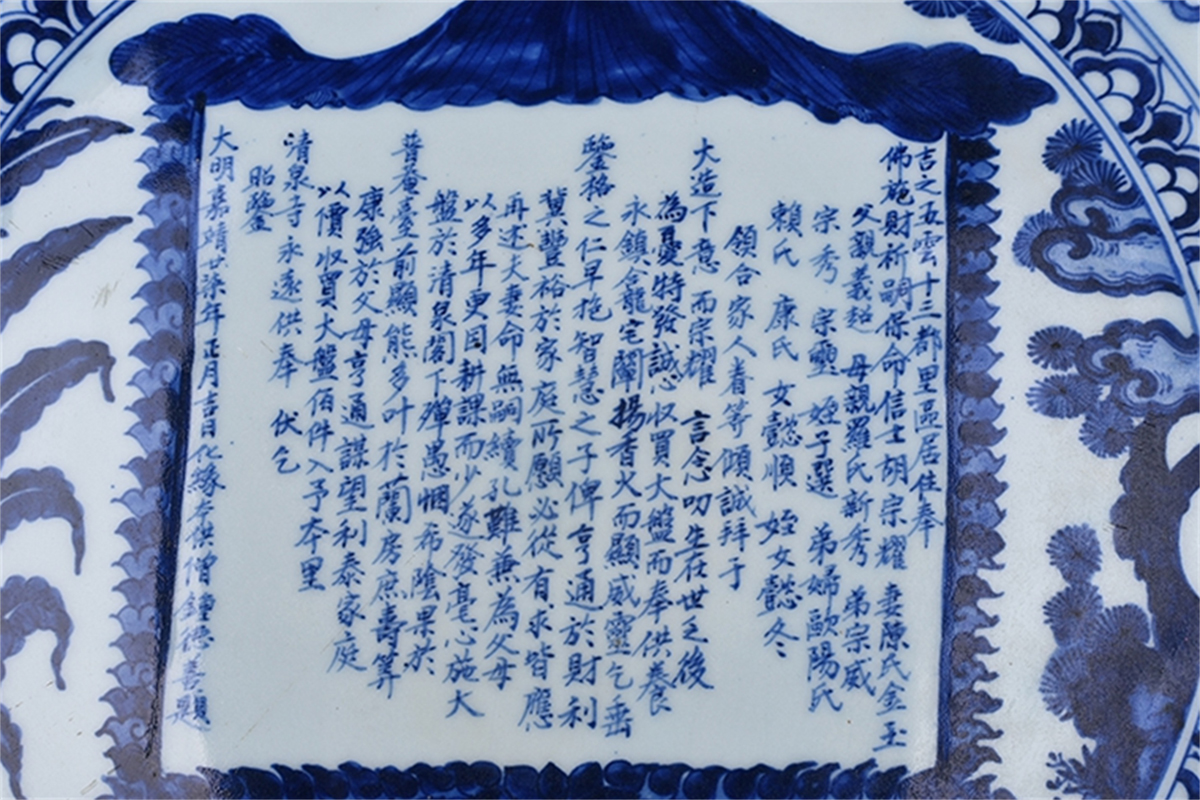 吉之五雲十三都里區居住奉
佛施財祈嗣保命信士胡宗耀 妻陳氏金玉
父親義超 母親羅氏新秀 弟宗威
宗秀 宗靈 姪子選 弟婦歐陽氏
賴氏 康氏 女懿順 姪女懿冬
領合家人眷等傾誠拜于
大造下意 而宗耀 言念叨生在世乏後
為憂特發誠心收買大盤而奉供養
永鎮龕宅闡揚香火而顯威靈乞垂
鑒格之仁早拖智慧之子俾亨通於財利
冀豐裕於家庭所願必從有求皆應
再述夫妻命無嗣續孔難兼為父母
以多年更因耕課而少遂發毫心施大
盤於清泉閣下殫愚悃布陰果於
普菴臺前顯熊多叶於蘭房庶壽筭
康強於父母亨通謀望利泰家庭
以價收買大盤佰件入予本里
清泉寺永遠供奉 伏乞
昭鑒
大明嘉靖廿 年正月吉日化緣本供僧鐘德善題